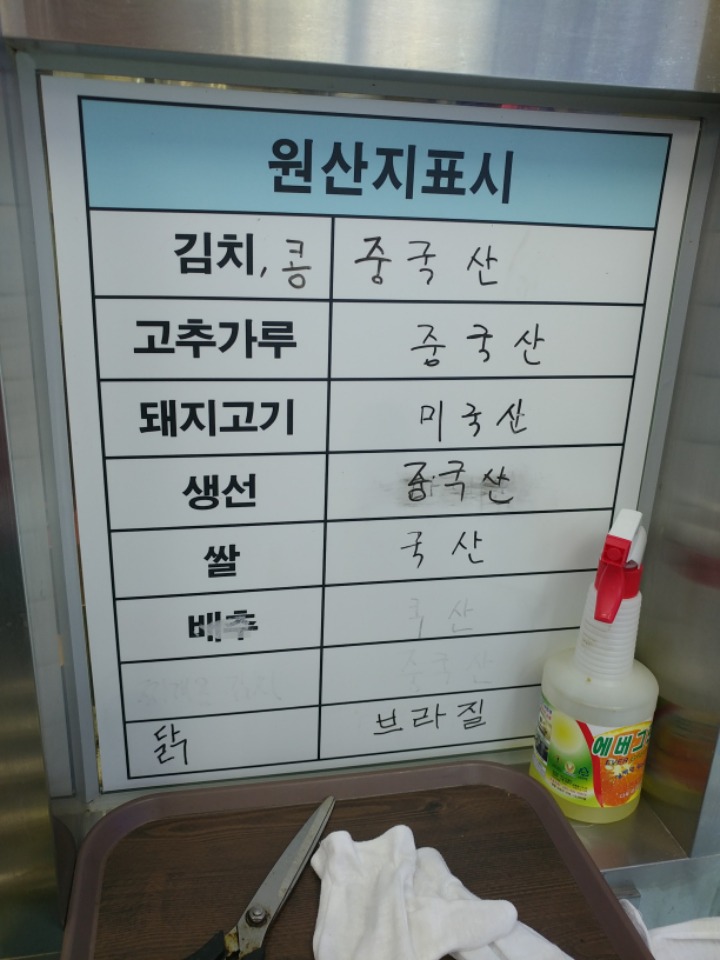 원산지표시
김치, 콩 중국산
고추가루 중국산
돼지고기 미국산
생선 중국산
쌀 국산
배추 국산
중국산
닭 브라질
에버그